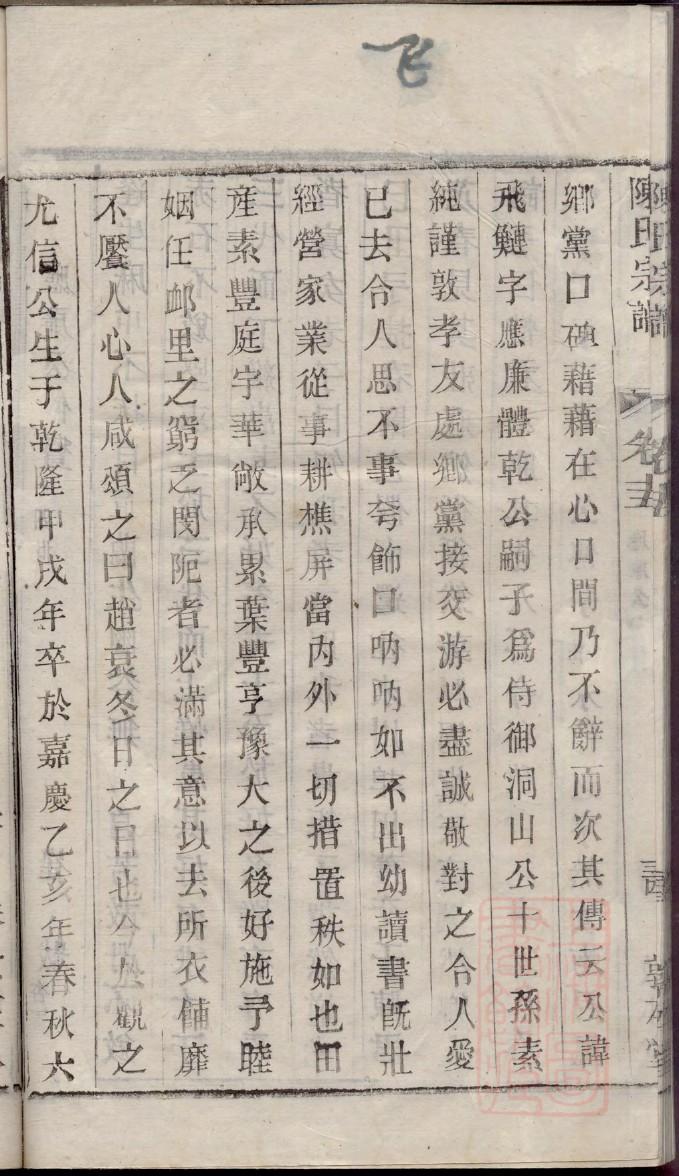 飞
陳氏宗譜
卷五
鄉黨口碑藉藉在心口間乃不辭而次其傳云公諱
飛鰱字應廉體乾公嗣子爲侍御洞山公十世孫素
純謹敦孝友處鄉黨接交游必盡誠敬對之令人愛
已去令人思不事夸飾口吶吶如不出幼讀書旣壯
經營家業從事耕樵屏當內外一切措置秩如也田
産素豐庭宇華敞承累葉豐亨豫大之後好施予睦
姻任卹里之窮乏閔阨者必滿其意以去所衣餔靡
不饜人心人咸頌之曰趙衰冬日之日也令人觀之
尤信公生于乾隆甲戌年卒於嘉慶乙亥年春秋六